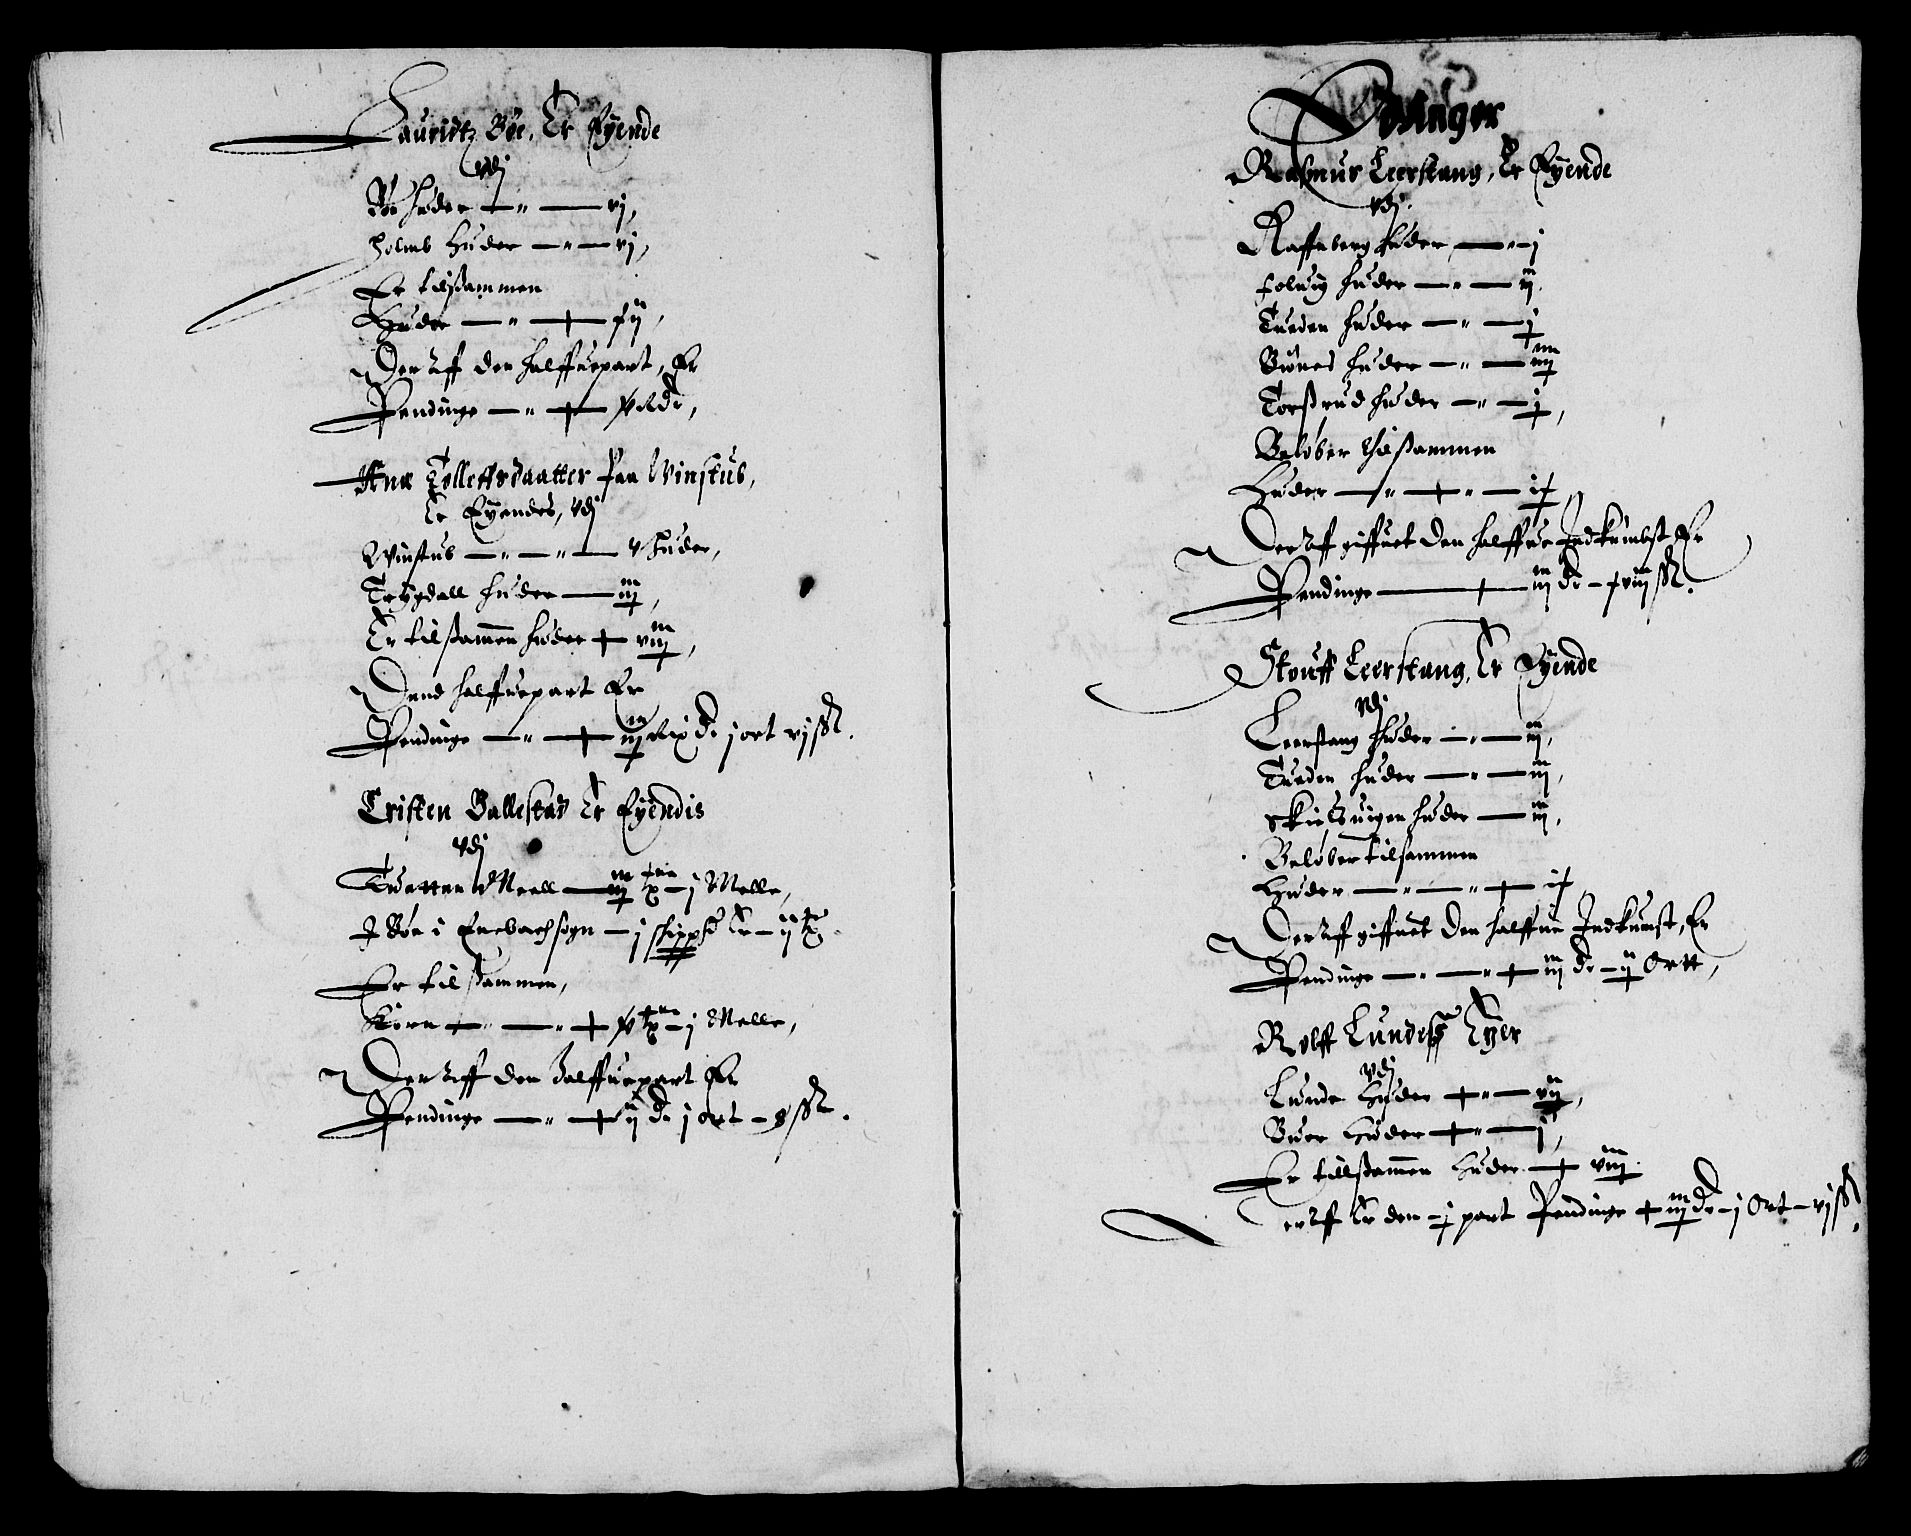 Lauridtz Böe, Er Eyende
vdj
Böe huder — " — vj,
Holmb Huder — " — vj,
Er tilsammen
Huder — " — xij,
Der aff den halffuepart, Er
Pendinge — " — v Rdr,
Ane Tolleffsdaatter paa Winstub,
Er Eyendes, vdj
Winstub — " — " — v Huder,
Trygdall huder — iiij,
Er tilsammen huder — viiij,
Dend halffuepart Er
Pendinge — " — iij Rix dr j ort vj ss.
Cristen Ballestad Er Eyendis
vdj
Tuetten Meell — iij tr — j Melle,
J Böe i Enebachsogn — j skippd Er — ij tr.
Er tilsammen,
Korn — " — " — v tr — j Melle,
Der aff den halffuepart Er
Pendinge — " — ij dr j ort — 8 ss.
Odinger
Rasmus Leerstang, Er Eyende
vdj
Raffnberg huder — " — j
Folwig huder — " — ij.
Tueden huder — " — j
Buönes huder — " — iiij
Torsrud huder — " — j,
Beløber thilsammen
Huder — " — " — ix
Der aff giffuet den halffue Indkumbst Er
Pendinge — iij dr — xviij ss.
Stouff Leerstang, Er Eyende
vdj
Leerstang huder — " — iij,
Tueden huder — " — iij,
Skielsuigen huder — iij,
Beløber tilsammen
Huder — " — " — ix
Der aff giffuet den halffue Indkumst, Er
Pendinge — " — " — iij dr — ij Ortt,
Rolff Lundesz Eyer
vdj
Lunde Huder — " — vij,
Buer Huder — " — j,
Er tillsamen Huder — viij.
Der aff Er den ½ part Pendinge — iij dr — j Ort — vj ss.